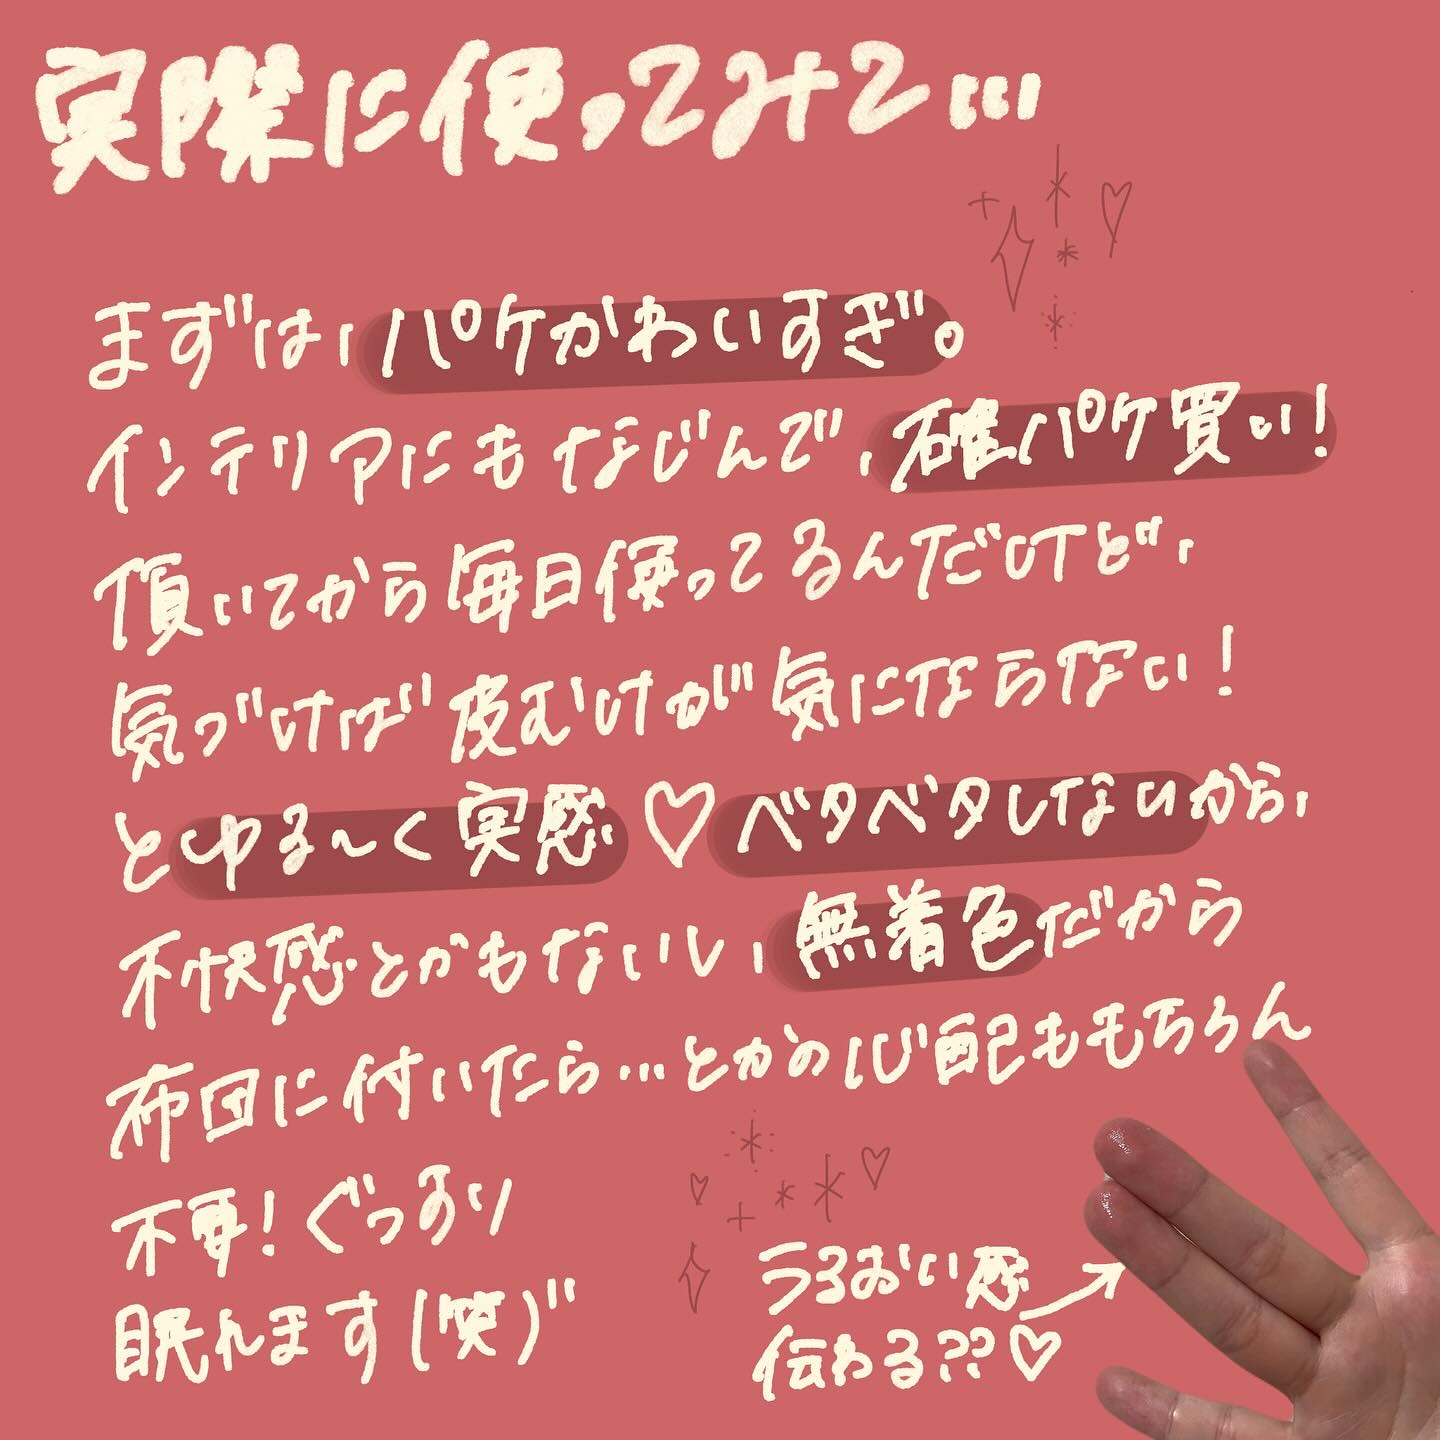 実際に使ってみて…
まずは、パケかわいすぎ。
インテリアにもなじんで、確パケ買い!
頂いてから毎日使ってるんだけど、
気づけば皮むけが気にならない!
とゆる〜く実感♡ベタベタしないから、
不快感とかもないし、無着色だから
布団に付いたら…とかの心配ももちろん
不要!ぐっすり
眠れます(笑)"
うるおい感
伝わる??♡